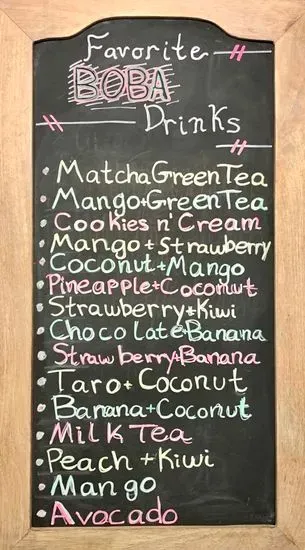 Favorite
BOBA
Drinks
Matcha Green Tea
Mango+Green Tea
Cookies n' Cream
Mango+Strawberry
Coconut+Mango
Pineapple+Coconut
Strawberry+Kiwi
Chocolate+Banana
Strawberry+Banana
Taro+Coconut
Banana+Coconut
Milk Tea
Peach+Kiwi
Mango
Avocado